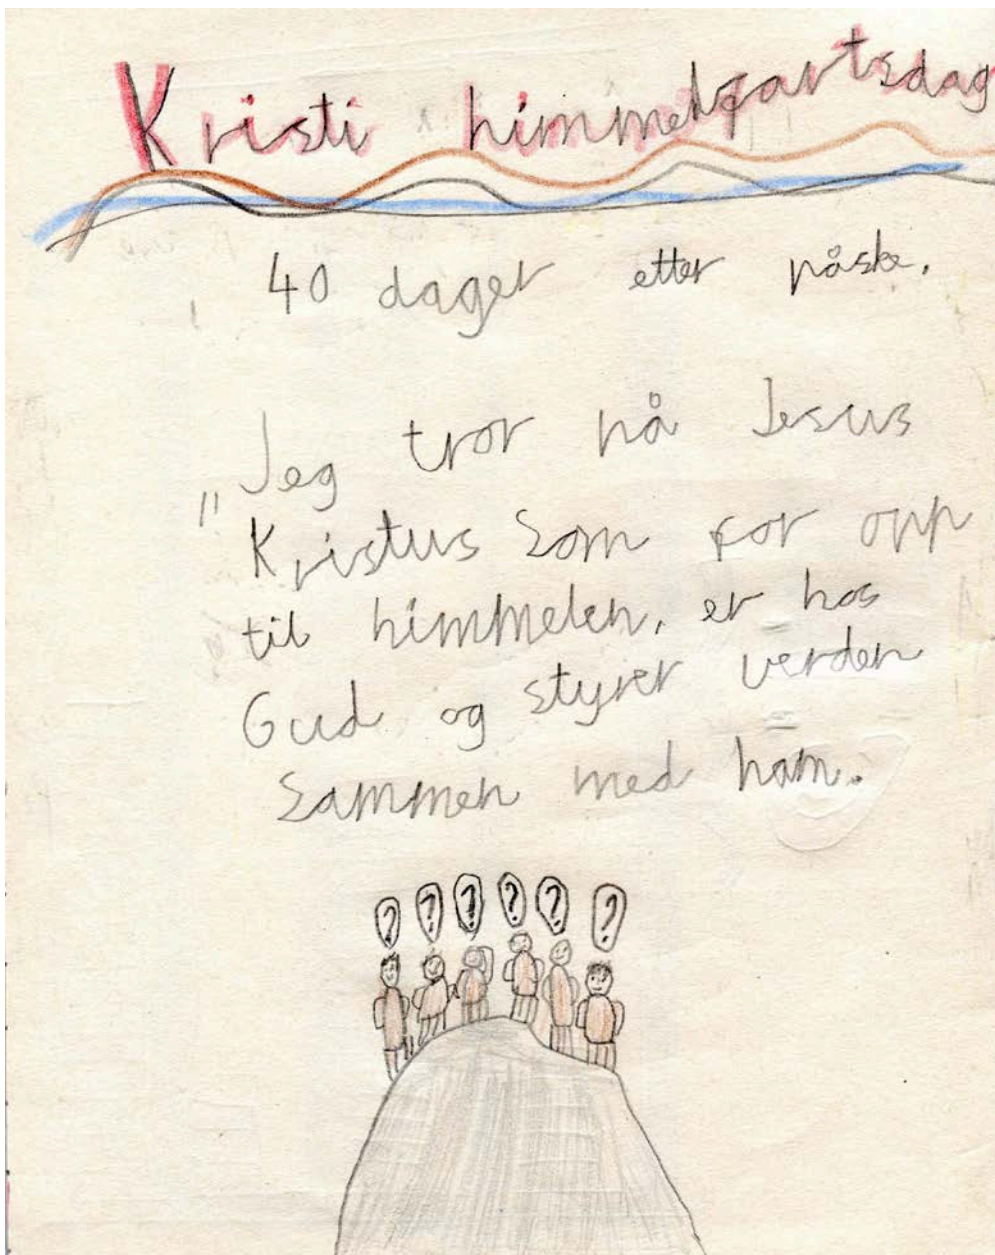 Kristi himmelfartsdag
40 dager etter påske.
„Jeg tror på Jesus
Kristus som for opp
til himmelen, er hos
Gud og styrer verden
sammen med ham.
? ? ? ? ? ?